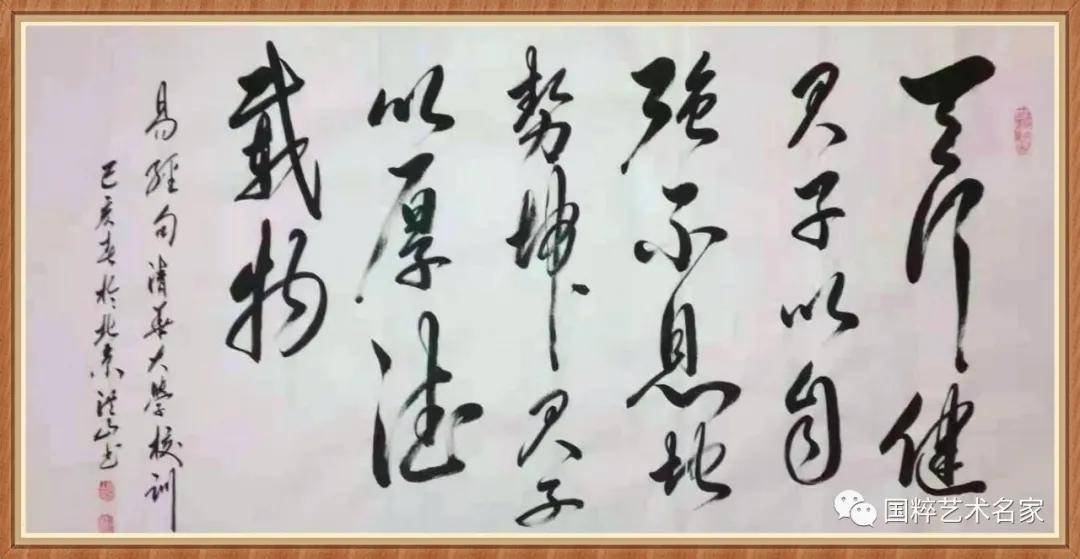 天行健
君子以自
强不息地
势坤君子
以厚德
载物
易经句清华大学校训
己亥春於北京洪山书
国粹艺术名家